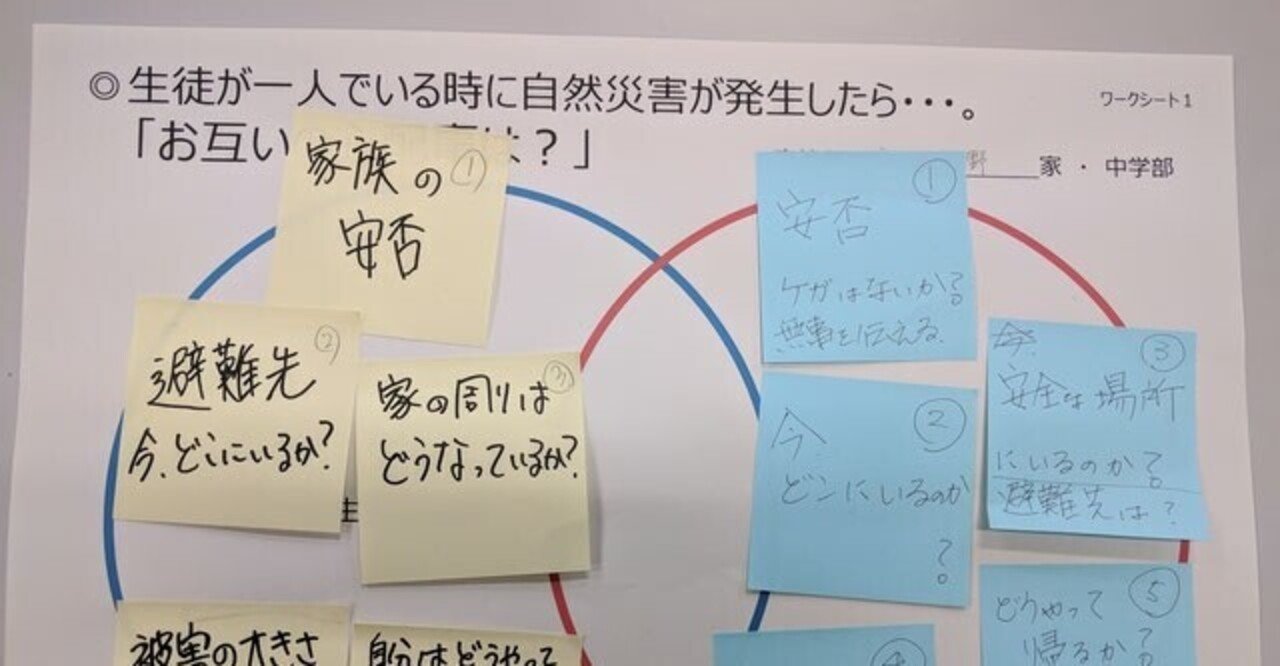 ◎生徒が一人でいる時に自然災害が発生したら・・・。
ワークシート1
「お互い
は？」
野 家 ・ 中学部
家族の ①
安否
避難先 ②
今、どこにいるか?
家の周りは ③
どうなっているか?
被害の大きさ
自分はどうやって
①
安否
ケガはないか?
無事を伝える.
②
今
どこにいるのか
?
③
安全な場所
にいるのか?
避難先は?
④
⑤
どうやって
帰るか?